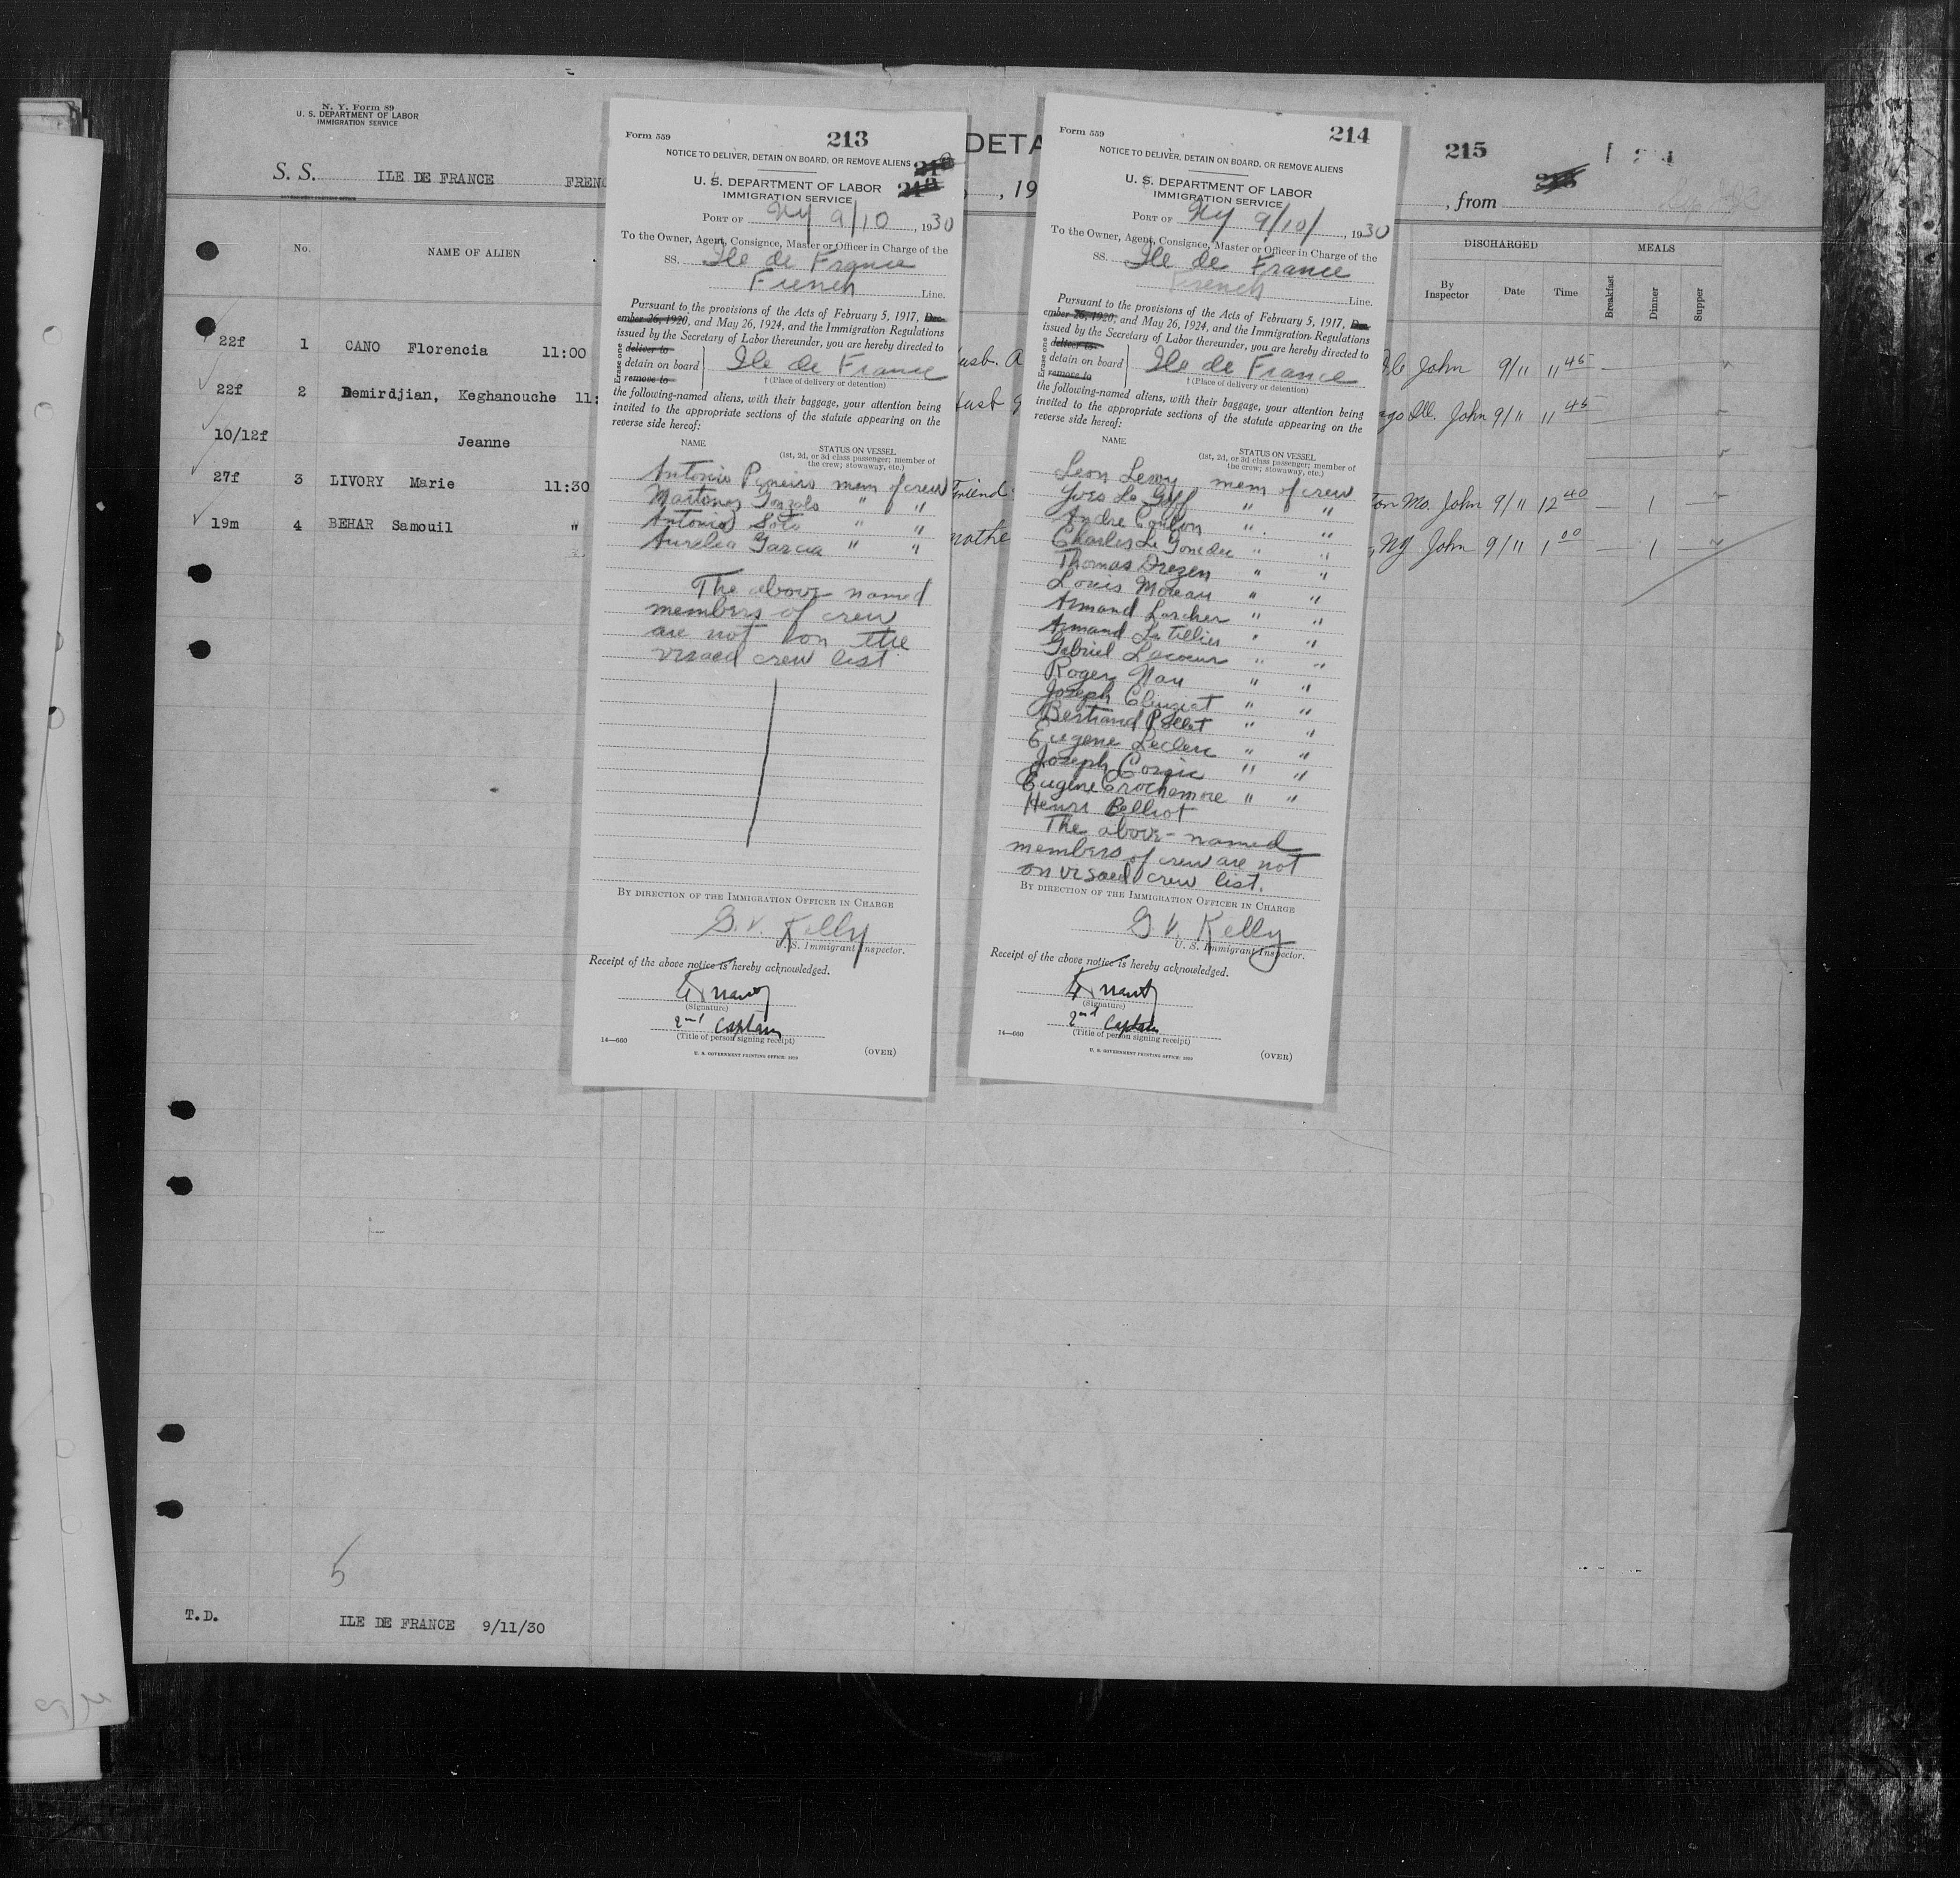 N. Y. Form 89
U. S. DEPARTMENT OF LABOR
IMMIGRATION SERVICE
DETA
215
S. S. ILE DE FRANCE FRENC
, 19
, from
No. NAME OF ALIEN
DISCHARGED MEALS
By Inspector Date Time Breakfast Dinner Supper
22f 1 CANO Florencia 11:00
John 9/11 11 45 —
22f 2 Demirdjian, Keghanouche 11:
Ill. John 9/11 11 45 —
10/12f Jeanne
27f 3 LIVORY Marie 11:30
Friend
Mo. John 9/11 12 40 — 1 —
19m 4 BEHAR Samouil "
NY John 9/11 1 00 — 1 —
5
T.D. ILE DE FRANCE 9/11/30
Form 559 213
NOTICE TO DELIVER, DETAIN ON BOARD, OR REMOVE ALIENS
U. S. DEPARTMENT OF LABOR
IMMIGRATION SERVICE
PORT OF NY 9/10, 1930
To the Owner, Agent, Consignee, Master or Officer in Charge of the
SS. Ile de France
French Line.
Pursuant to the provisions of the Acts of February 5, 1917, Dec-
ember 26, 1920, and May 26, 1924, and the Immigration Regulations
issued by the Secretary of Labor thereunder, you are hereby directed to
Erase one
deliver to
detain on board Ile de France
remove to † (Place of delivery or detention)
the following-named aliens, with their baggage, your attention being
invited to the appropriate sections of the statute appearing on the
reverse side hereof:
NAME STATUS ON VESSEL
(1st, 2d, or 3d class passenger; member of
the crew; stowaway, etc.)
Antonio mem of crew
Martinez Gonzalo " "
Antonio Soto " "
Aurelio Garcia " "
The above named
members of crew
are not on the
visaed crew list
BY DIRECTION OF THE IMMIGRATION OFFICER IN CHARGE
G. V. Kelly
U. S. Immigrant Inspector.
Receipt of the above notice is hereby acknowledged.
(Signature)
2nd Captain
(Title of person signing receipt)
14—660 (OVER)
U. S. GOVERNMENT PRINTING OFFICE: 1929
Form 559 214
NOTICE TO DELIVER, DETAIN ON BOARD, OR REMOVE ALIENS
U. S. DEPARTMENT OF LABOR
IMMIGRATION SERVICE
PORT OF NY 9/10/, 1930
To the Owner, Agent, Consignee, Master or Officer in Charge of the
SS. Ile de France
French Line.
Pursuant to the provisions of the Acts of February 5, 1917, Dec-
ember 26, 1920, and May 26, 1924, and the Immigration Regulations
issued by the Secretary of Labor thereunder, you are hereby directed to
Erase one
deliver to
detain on board Ile de France
remove to † (Place of delivery or detention)
the following-named aliens, with their baggage, your attention being
invited to the appropriate sections of the statute appearing on the
reverse side hereof:
NAME STATUS ON VESSEL
(1st, 2d, or 3d class passenger; member of
the crew; stowaway, etc.)
Leon Lewy mem of crew
Yves Le Goff " "
Andre Coulon " "
Charles Le " "
Thomas Drezen " "
Louis Moreau " "
Armand Larcher " "
Armand Le Tellier " "
Gabriel Lacoeur " "
Roger Nau " "
Joseph " "
Bertrand " "
Eugene Leclerc " "
Joseph " "
Eugene Crochemore " "
Henri Belliot
The above-named
members of crew are not
on visaed crew list.
BY DIRECTION OF THE IMMIGRATION OFFICER IN CHARGE
G. V. Kelly
U. S. Immigrant Inspector.
Receipt of the above notice is hereby acknowledged.
(Signature)
2nd Captain
(Title of person signing receipt)
14—660 (OVER)
U. S. GOVERNMENT PRINTING OFFICE: 1929